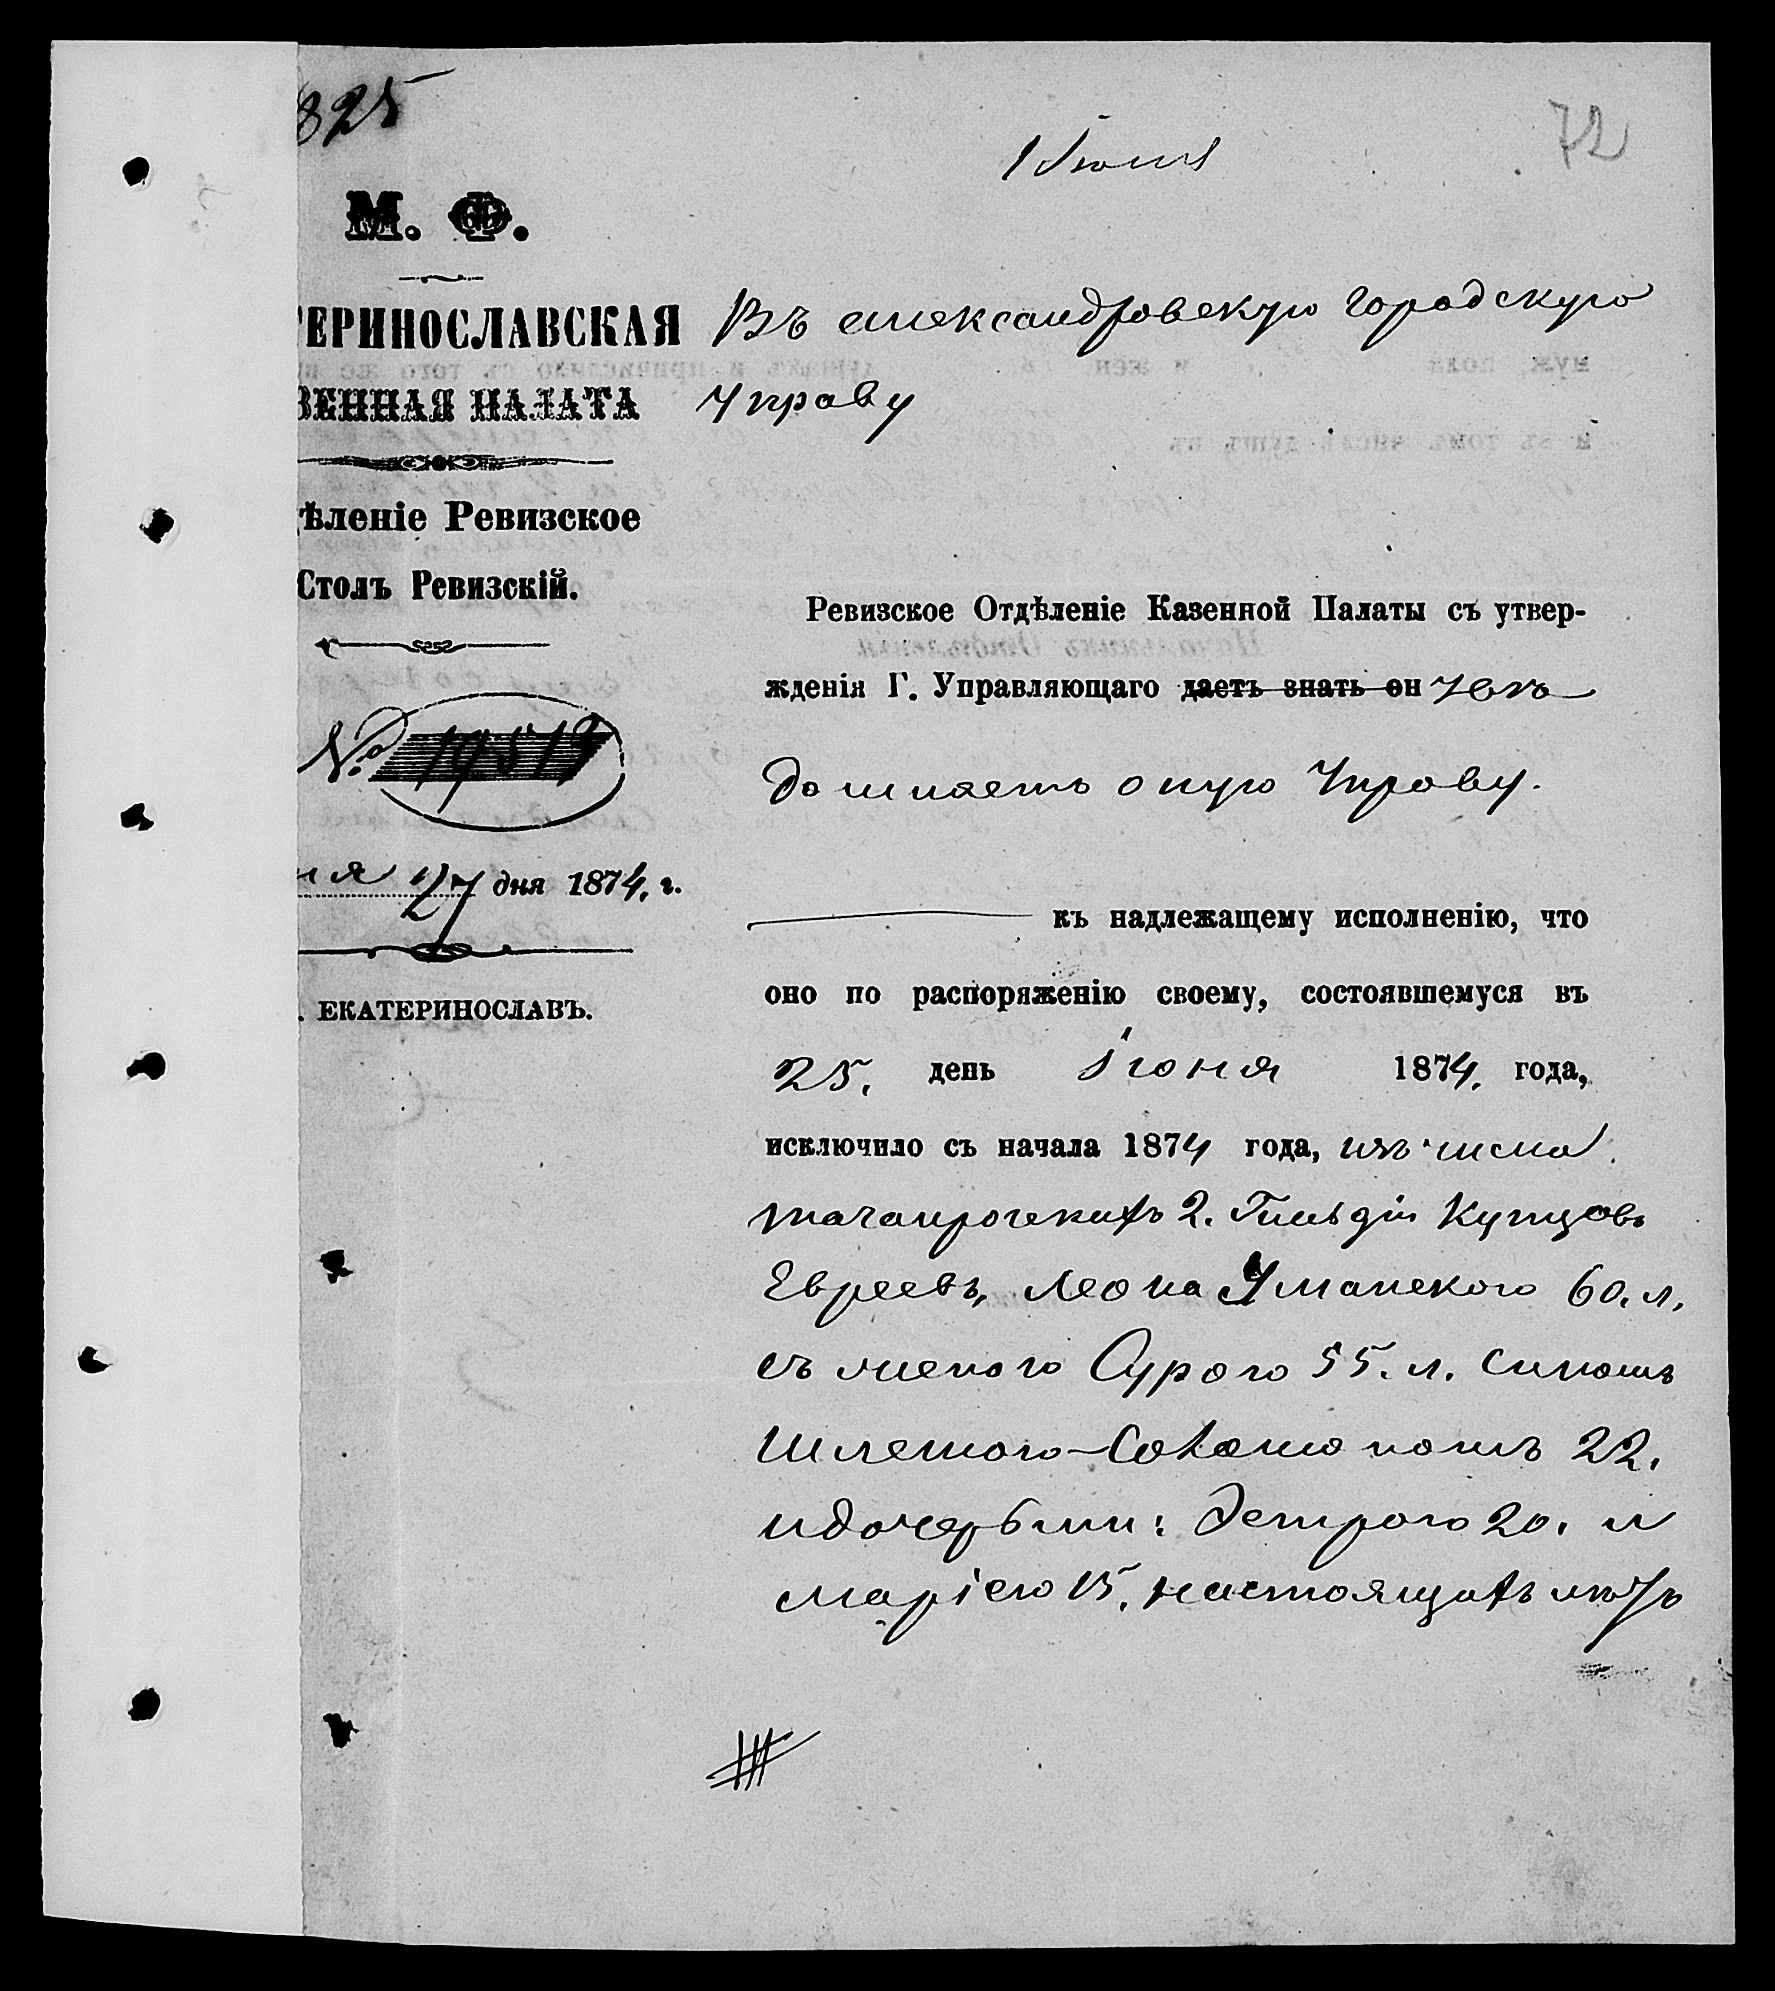 825
72
М. Ф.
ТЕРИНОСЛАВСКАЯ
ВЕННАЯ ПАЛАТА
дѣленіе Ревизское
Столъ Ревизскій.
№
ня 27 дня 1874, г.
. ЕКАТЕРИНОСЛАВЪ.
Въ Александровскую Городскую
Управу
Ревизское Отдѣленіе Казенной Палаты съ утвер-
жденія Г. Управляющаго даетъ знать он увѣ
домляетъ оную Управу.
къ надлежащему исполненію, что
оно по распоряженію своему, состоявшемуся въ
25. день Іюня 1874. года,
исключило съ начала 1874 года, изъ числа
таганрогскихъ 2. Гильдіи Купцовъ
Евреевъ, Леона Уманскаго 60. л.
съ женою Сурою 55. л. сыномъ
Шлемою-Соломономъ 22.
и дочерьми: 20. и
Маріею 15. настоящихъ лѣтъ